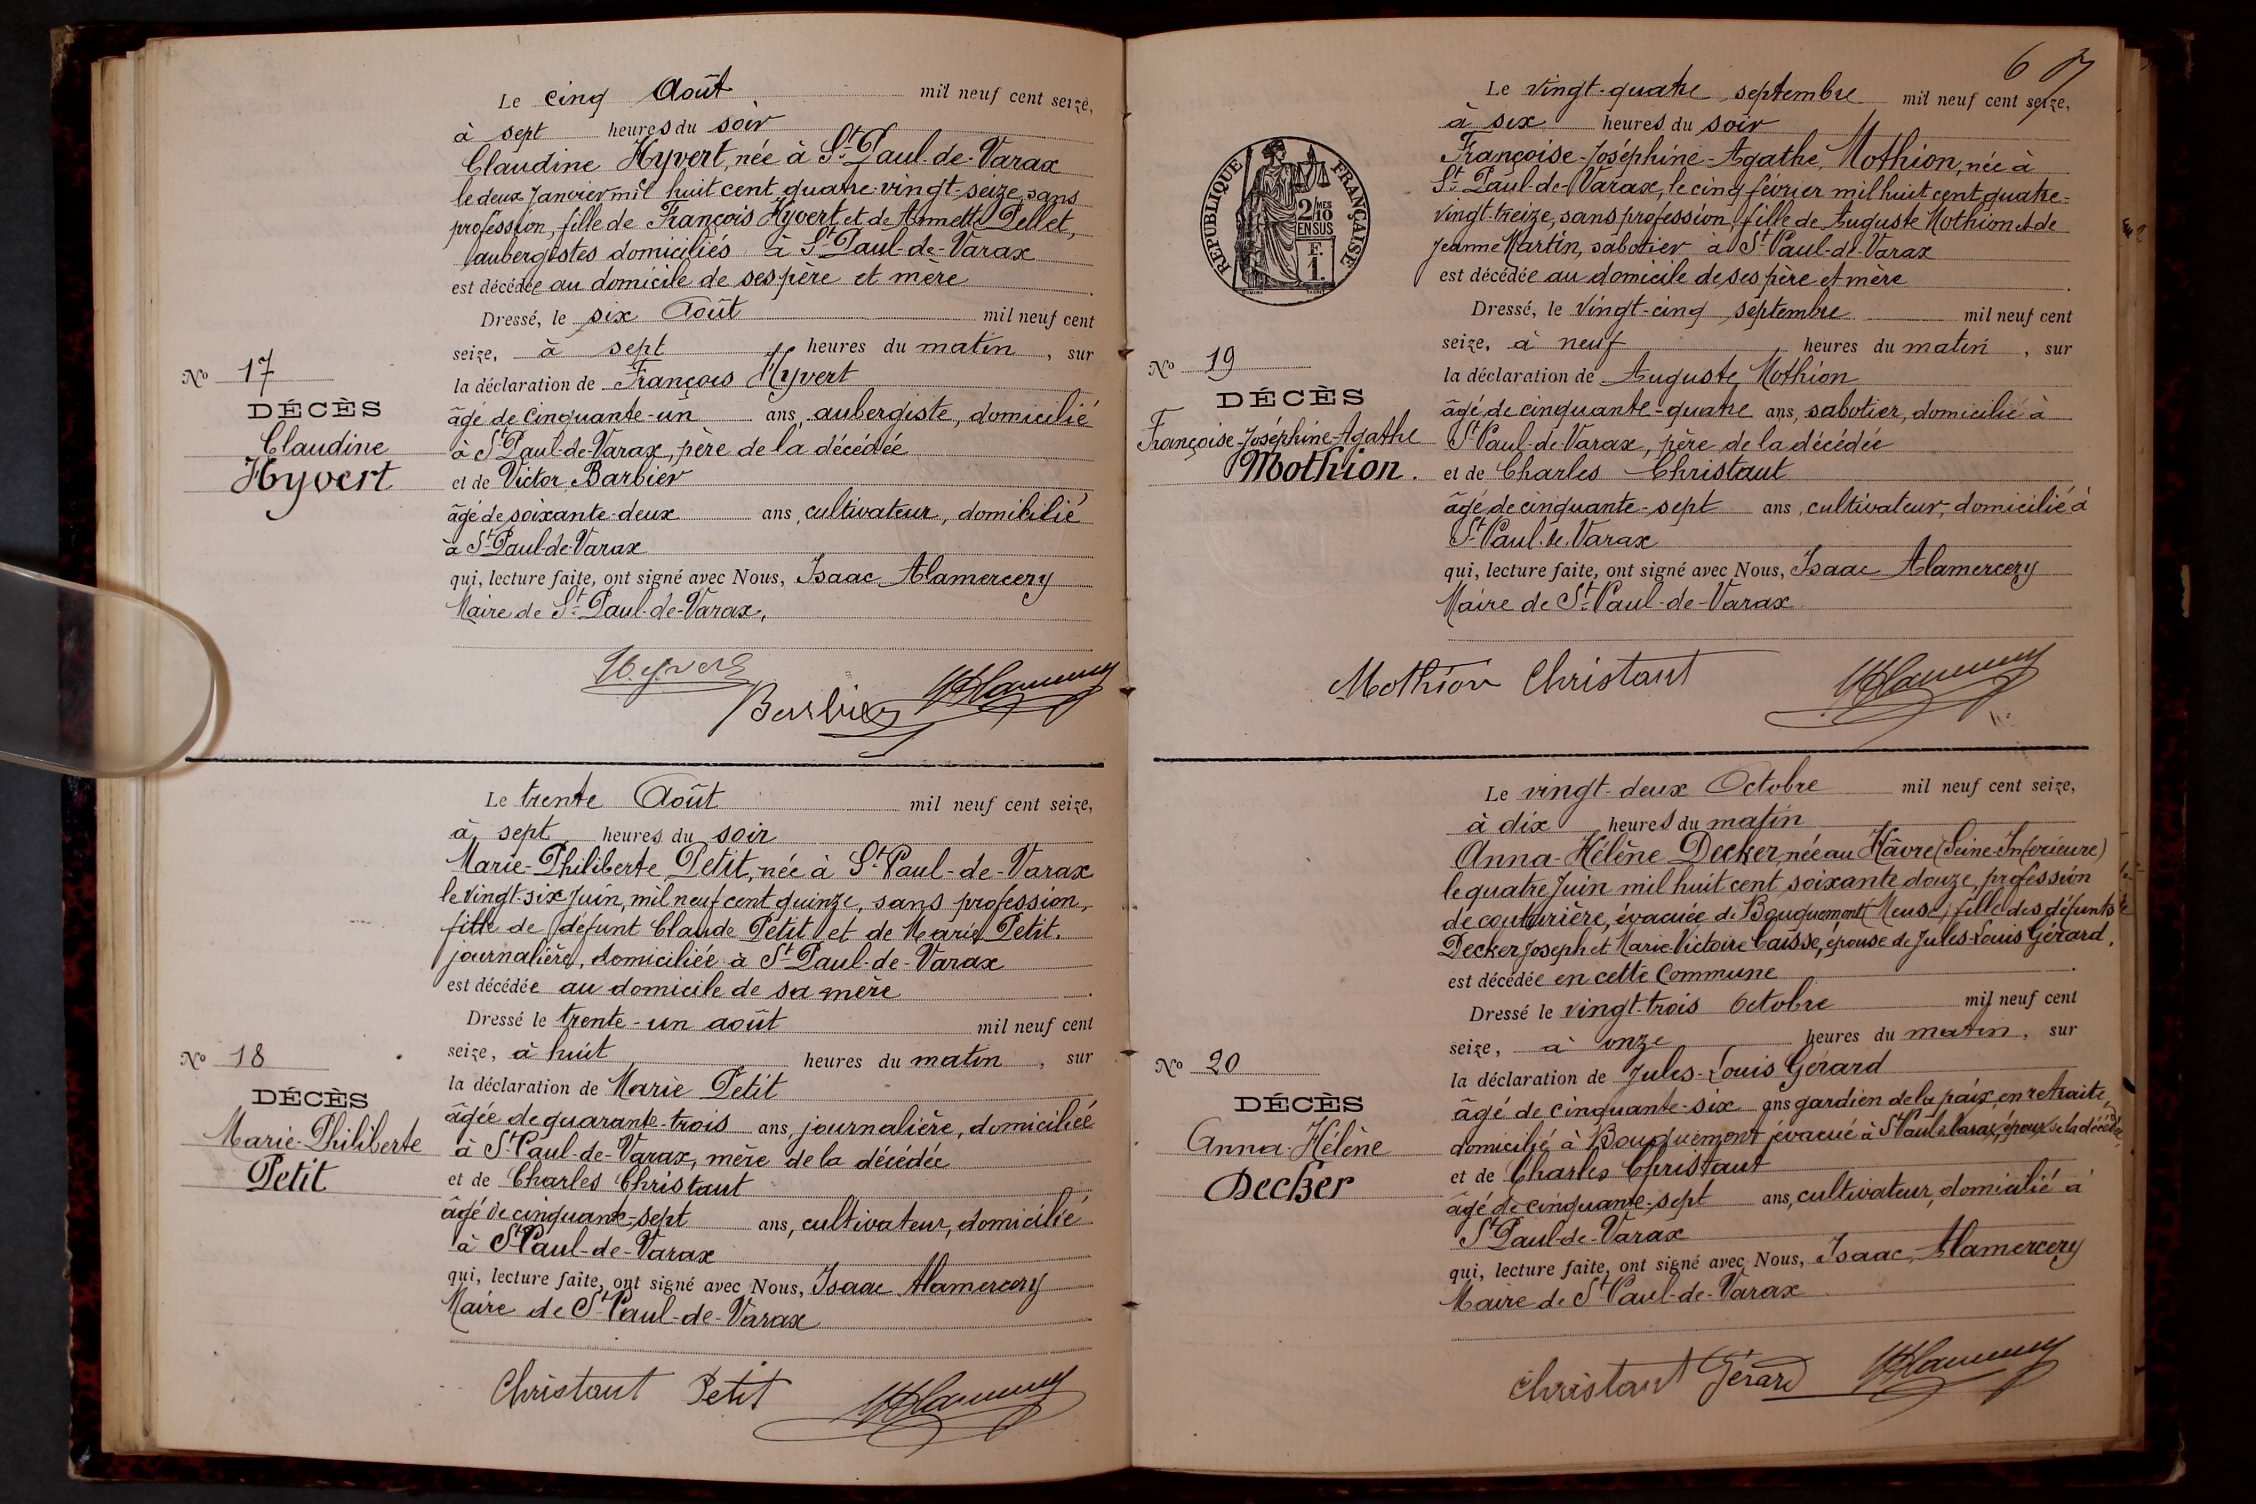 Le cinq Août mil neuf cent seize,
à sept heures du soir
Claudine Hyvert, née à St Paul-de-Varax
le deux Janvier mil huit cent quatre-vingt-seize, sans
profession, fille de François Hyvert et de Annette Pellet,
aubergistes domiciliés à St Paul-de-Varax
est décédée au domicile de ses père et mère
Dressé, le six Août mil neuf cent
seize, à sept heures du matin, sur
la déclaration de François Hyvert
âgé de cinquante-un ans, aubergiste, domicilié
à St Paul-de-Varax, père de la décédée
et de Victor Barbier
âgé de soixante-deux ans, cultivateur, domicilié
à St Paul-de-Varax
qui, lecture faite, ont signé avec Nous, Isaac Alamercery
Maire de St Paul-de-Varax,
Nº 17
DÉCÈS
Claudine
Hyvert
Hyvert
Barbier
Le trente Août mil neuf cent seize,
à sept heures du soir
Marie-Philiberte Petit, née à St Paul-de-Varax
le vingt-six Juin, mil neuf cent quinze, sans profession,
fille de défunt Claude Petit et de Marie Petit.
journalière, domiciliée à St Paul-de-Varax
est décédée au domicile de sa mère
Dressé le trente-un août mil neuf cent
seize, à huit heures du matin, sur
la déclaration de Marie Petit
âgée de quarante-trois ans, journalière, domiciliée
à St Paul-de-Varax, mère de la décédée
et de Charles Christaut
âgé de cinquante-sept ans, cultivateur, domicilié
à St Paul-de-Varax
qui, lecture faite, ont signé avec Nous, Isaac Alamercery
Maire de St Paul-de-Varax
Nº 18
DÉCÈS
Marie-Philiberte
Petit
Christaut Petit
6
RÉPUBLIQUE FRANÇAISE
2/10 MES
EN SUS
F.
1.
Le vingt-quatre septembre mil neuf cent seize,
à six heures du soir
Françoise-Joséphine-Agathe Mothion, née à
St Paul-de-Varax, le cinq février mil huit cent quatre-
vingt-treize, sans profession, fille de Auguste Mothion et de
Jeanne Martin, sabotier à St Paul-de-Varax
est décédée au domicile de ses père et mère
Dressé, le vingt-cinq septembre mil neuf cent
seize, à neuf heures du matin, sur
la déclaration de Auguste Mothion
âgé de cinquante-quatre ans, sabotier, domicilié à
St Paul-de-Varax, père de la décédée
et de Charles Christaut
âgé de cinquante-sept ans, cultivateur, domicilié à
St Paul-de-Varax
qui, lecture faite, ont signé avec Nous, Isaac Alamercery
Maire de St Paul-de-Varax
Nº 19
DÉCÈS
Françoise-Joséphine-Agathe
Mothion.
Mothion Christaut
Le vingt-deux Octobre mil neuf cent seize,
à dix heures du matin
Anna-Hélène Decker, née au Hâvre (Seine-Inférieure)
le quatre Juin mil huit cent soixante douze, profession
de couturière, évacuée de Bouquemont (Meuse) fille des défunts
Decker Joseph et Marie-Victoire Caisse, épouse de Jules-Louis Gérard,
est décédée en cette Commune
Dressé le vingt-trois Octobre mil neuf cent
seize, à onze heures du matin, sur
la déclaration de Jules-Louis Gérard
âgé de cinquante-six ans gardien de la paix, en retraite,
domicilié à Bouquemont évacué à St Paul de Varax, époux de la décédée
et de Charles Christaut
âgé de cinquante-sept ans, cultivateur, domicilié à
St Paul-de-Varax
qui, lecture faite, ont signé avec Nous, Isaac Alamercery
Maire de St Paul-de-Varax
Nº 20
DÉCÈS
Anna-Hélène
Decker
Christaut Gérard